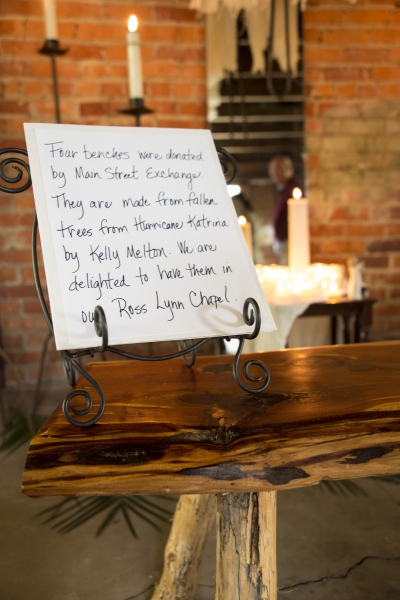 Four benches were donated
by Main Street Exchange
They are made from fallen
trees from Hurricane Katrina
by Kelly Melton. We are
delighted to have them in
our Ross Lynn Chapel.